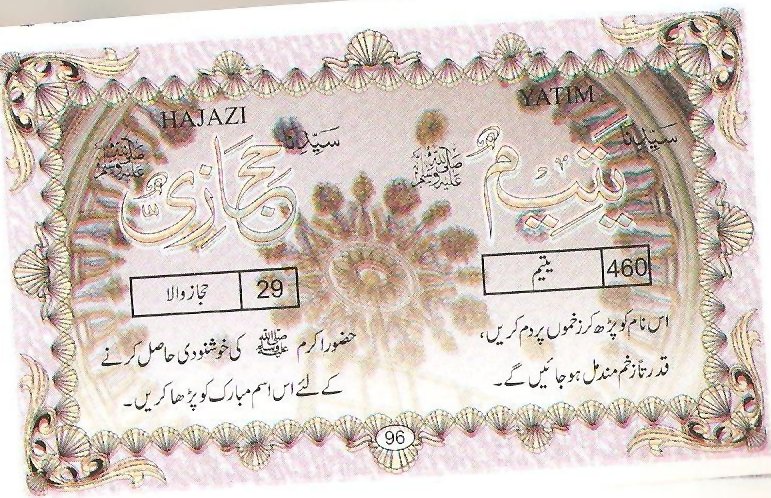 YATIM
سیدنا یَتِیمٌ صلی اللہ علیہ وسلم
460 یتیم
اس نام کو پڑھ کر زخموں پر دم کریں،
قدرتاً زخم مندمل ہو جائیں گے۔
HAJAZI
سیدنا حجازیٌّ صلی اللہ علیہ وسلم
29 حجاز والا
حضور اکرم صلی اللہ علیہ وسلم کی خوشنودی حاصل کرنے
کے لئے اس اسم مبارک کو پڑھا کریں۔
96